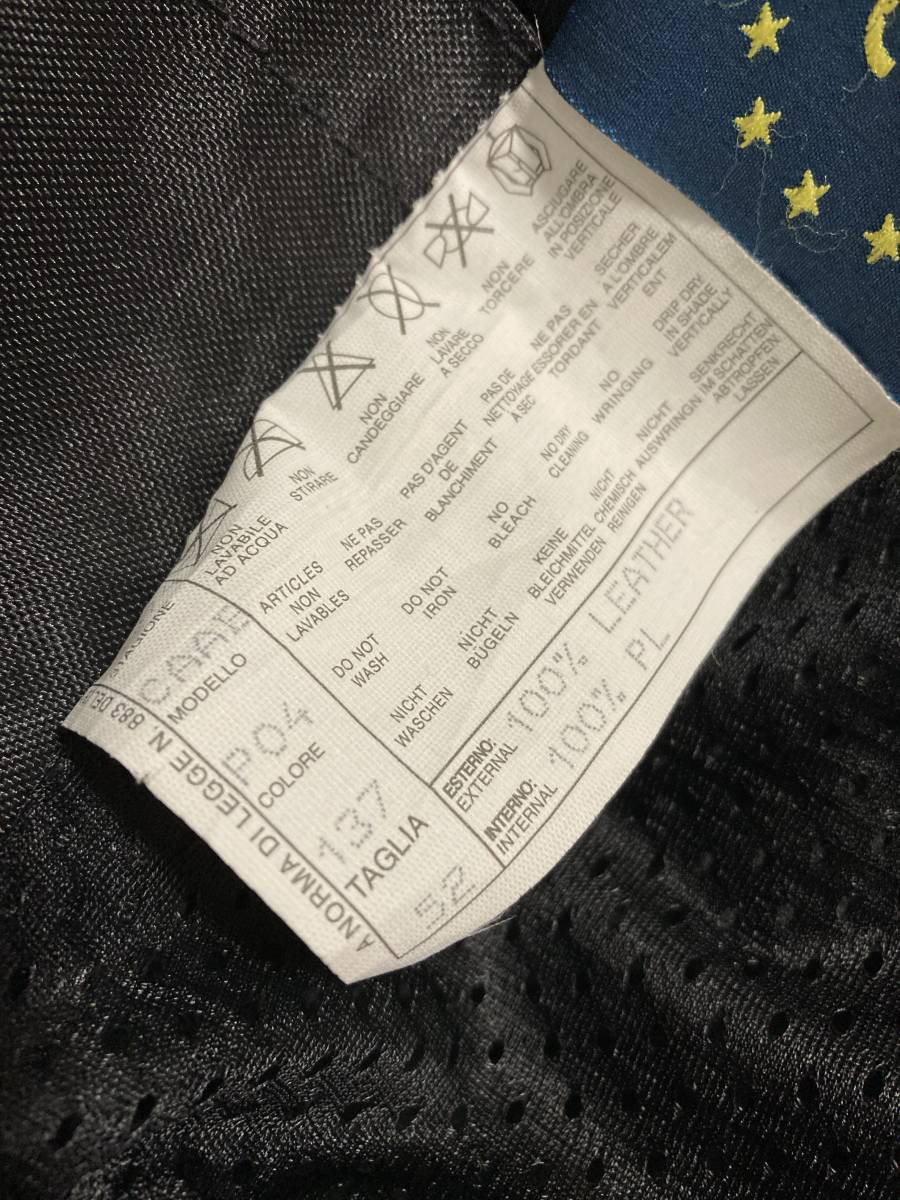 NON
LAVABILE
AD ACQUA
NON
STIRARE
NON
CANDEGGIARE
NON
LAVARE
A SECCO
NON
TORCERE
ASCIUGARE
ALL'OMBRA
IN POSIZIONE
VERTICALE
ARTICLES
NON
LAVABLES
NE PAS
REPASSER
PAS D'AGENT
DE
BLANCHIMENT
PAS DE
NETTOYAGE
A SEC
NE PAS
ESSORER EN
TORDANT
SECHER
A L'OMBRE
VERTICALEM
ENT
DO NOT
WASH
DO NOT
IRON
NO
BLEACH
NO DRY
CLEANING
NO
WRINGING
DRIP DRY
IN SHADE
VERTICALLY
NICHT
WASCHEN
NICHT
BÜGELN
KEINE
BLEICHMITTEL
VERWENDEN
NICHT
CHEMISCH
REINIGEN
NICHT
AUSWRINGN
SENKRECHT
IM SCHATTEN
ABTROPFEN
LASSEN
MODELLO
P04
COLORE
137
TAGLIA
52
ESTERNO:
EXTERNAL
100% LEATHER
INTERNO:
INTERNAL
100% PL
A NORMA DI LEGGE N. 883